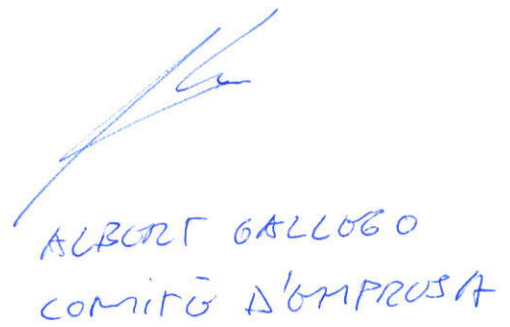 ALBERT GALLEGO
COMITÈ D'EMPRESA